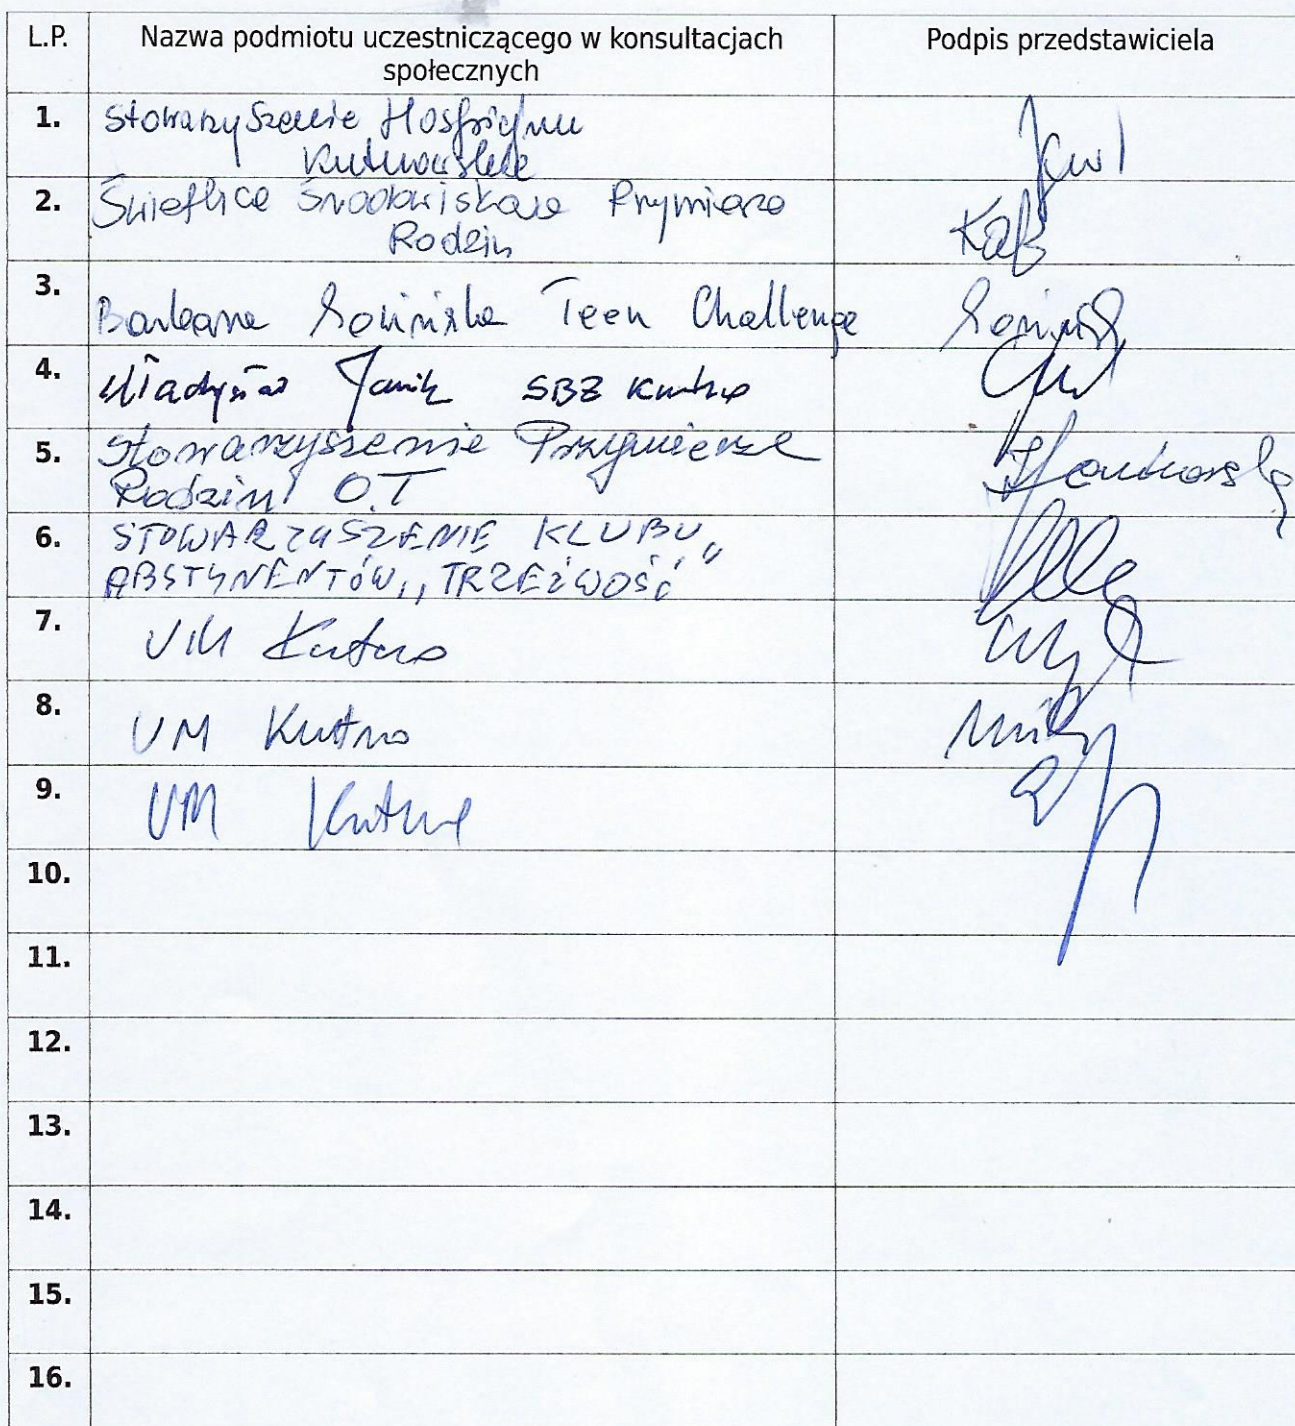 L.P. Nazwa podmiotu uczestniczącego w konsultacjach Podpis przedstawiciela
społecznych
1. Stowarzyszenie Hospicjum
Kutnowskie
2. Świetlica Środowiskowa Przymierze
Rodzin
3. Barbara Teen Challenge
4. Władysław Janik SBZ Kutno
5. Stowarzyszenie Przymierze
Rodzin O.T
6. STOWARZYSZENIE KLUBU
ABSTYNENTÓW „TRZEŹWOŚĆ”
7. UM Kutno
8. UM Kutno
9. UM Kutno
10.
11.
12.
13.
14.
15.
16.